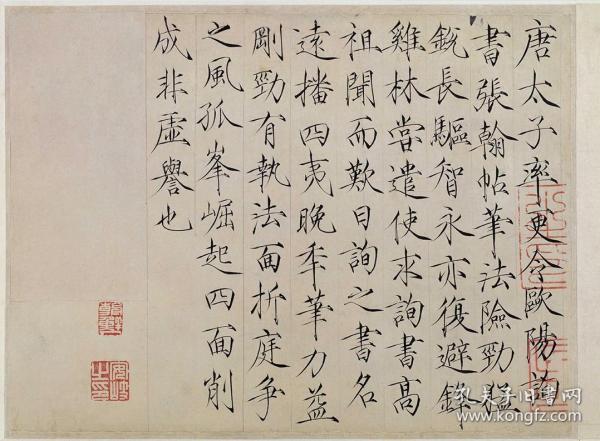 唐太子率更令歐陽詢
書張翰帖筆法險勁猛
銳長驅智永亦復避鋒
雞林嘗遣使求詢書高
祖聞而歎曰詢之書名
遠播四夷晚年筆力益
剛勁有執法面折庭爭
之風孤峯崛起四面削
成非虛譽也
孔夫子旧书网